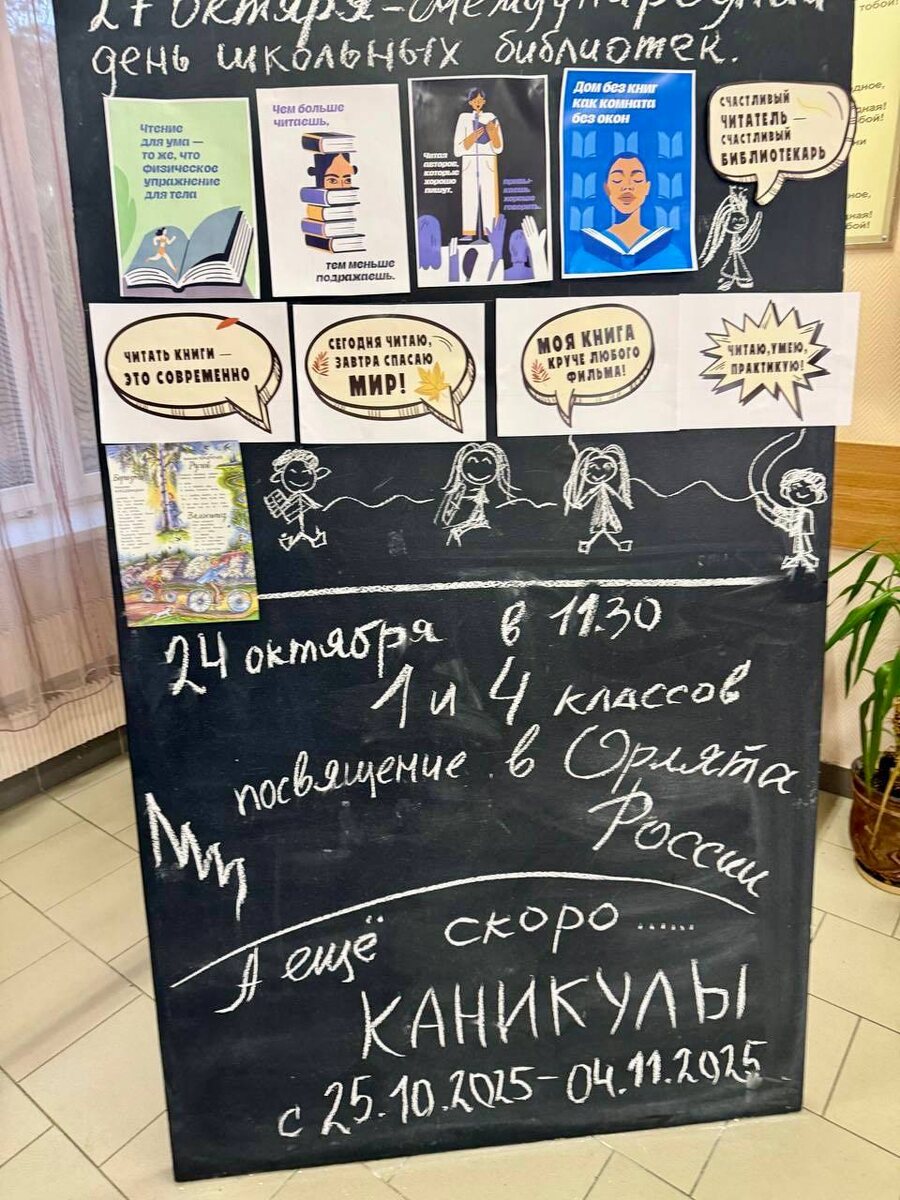 27 октября – Международный
день школьных библиотек.
Чтение
для ума —
то же, что
физическое
упражнение
для тела
Чем больше
читаешь,
тем меньше
подражаешь.
Читая
авторов,
которые
хорошо
пишут,
привы-
каешь
хорошо
говорить.
Дом без книг
как комната
без окон
СЧАСТЛИВЫЙ
ЧИТАТЕЛЬ —
СЧАСТЛИВЫЙ
БИБЛИОТЕКАРЬ
ЧИТАТЬ КНИГИ —
ЭТО СОВРЕМЕННО
СЕГОДНЯ ЧИТАЮ,
ЗАВТРА СПАСАЮ
МИР!
МОЯ КНИГА
КРУЧЕ ЛЮБОГО
ФИЛЬМА!
ЧИТАЮ, УМЕЮ,
ПРАКТИКУЮ!
24 октября в 11.30
1 и 4 классов
посвящение в Орлята
России
А ещё скоро......
КАНИКУЛЫ
с 25.10.2025 – 04.11.2025
тобой!